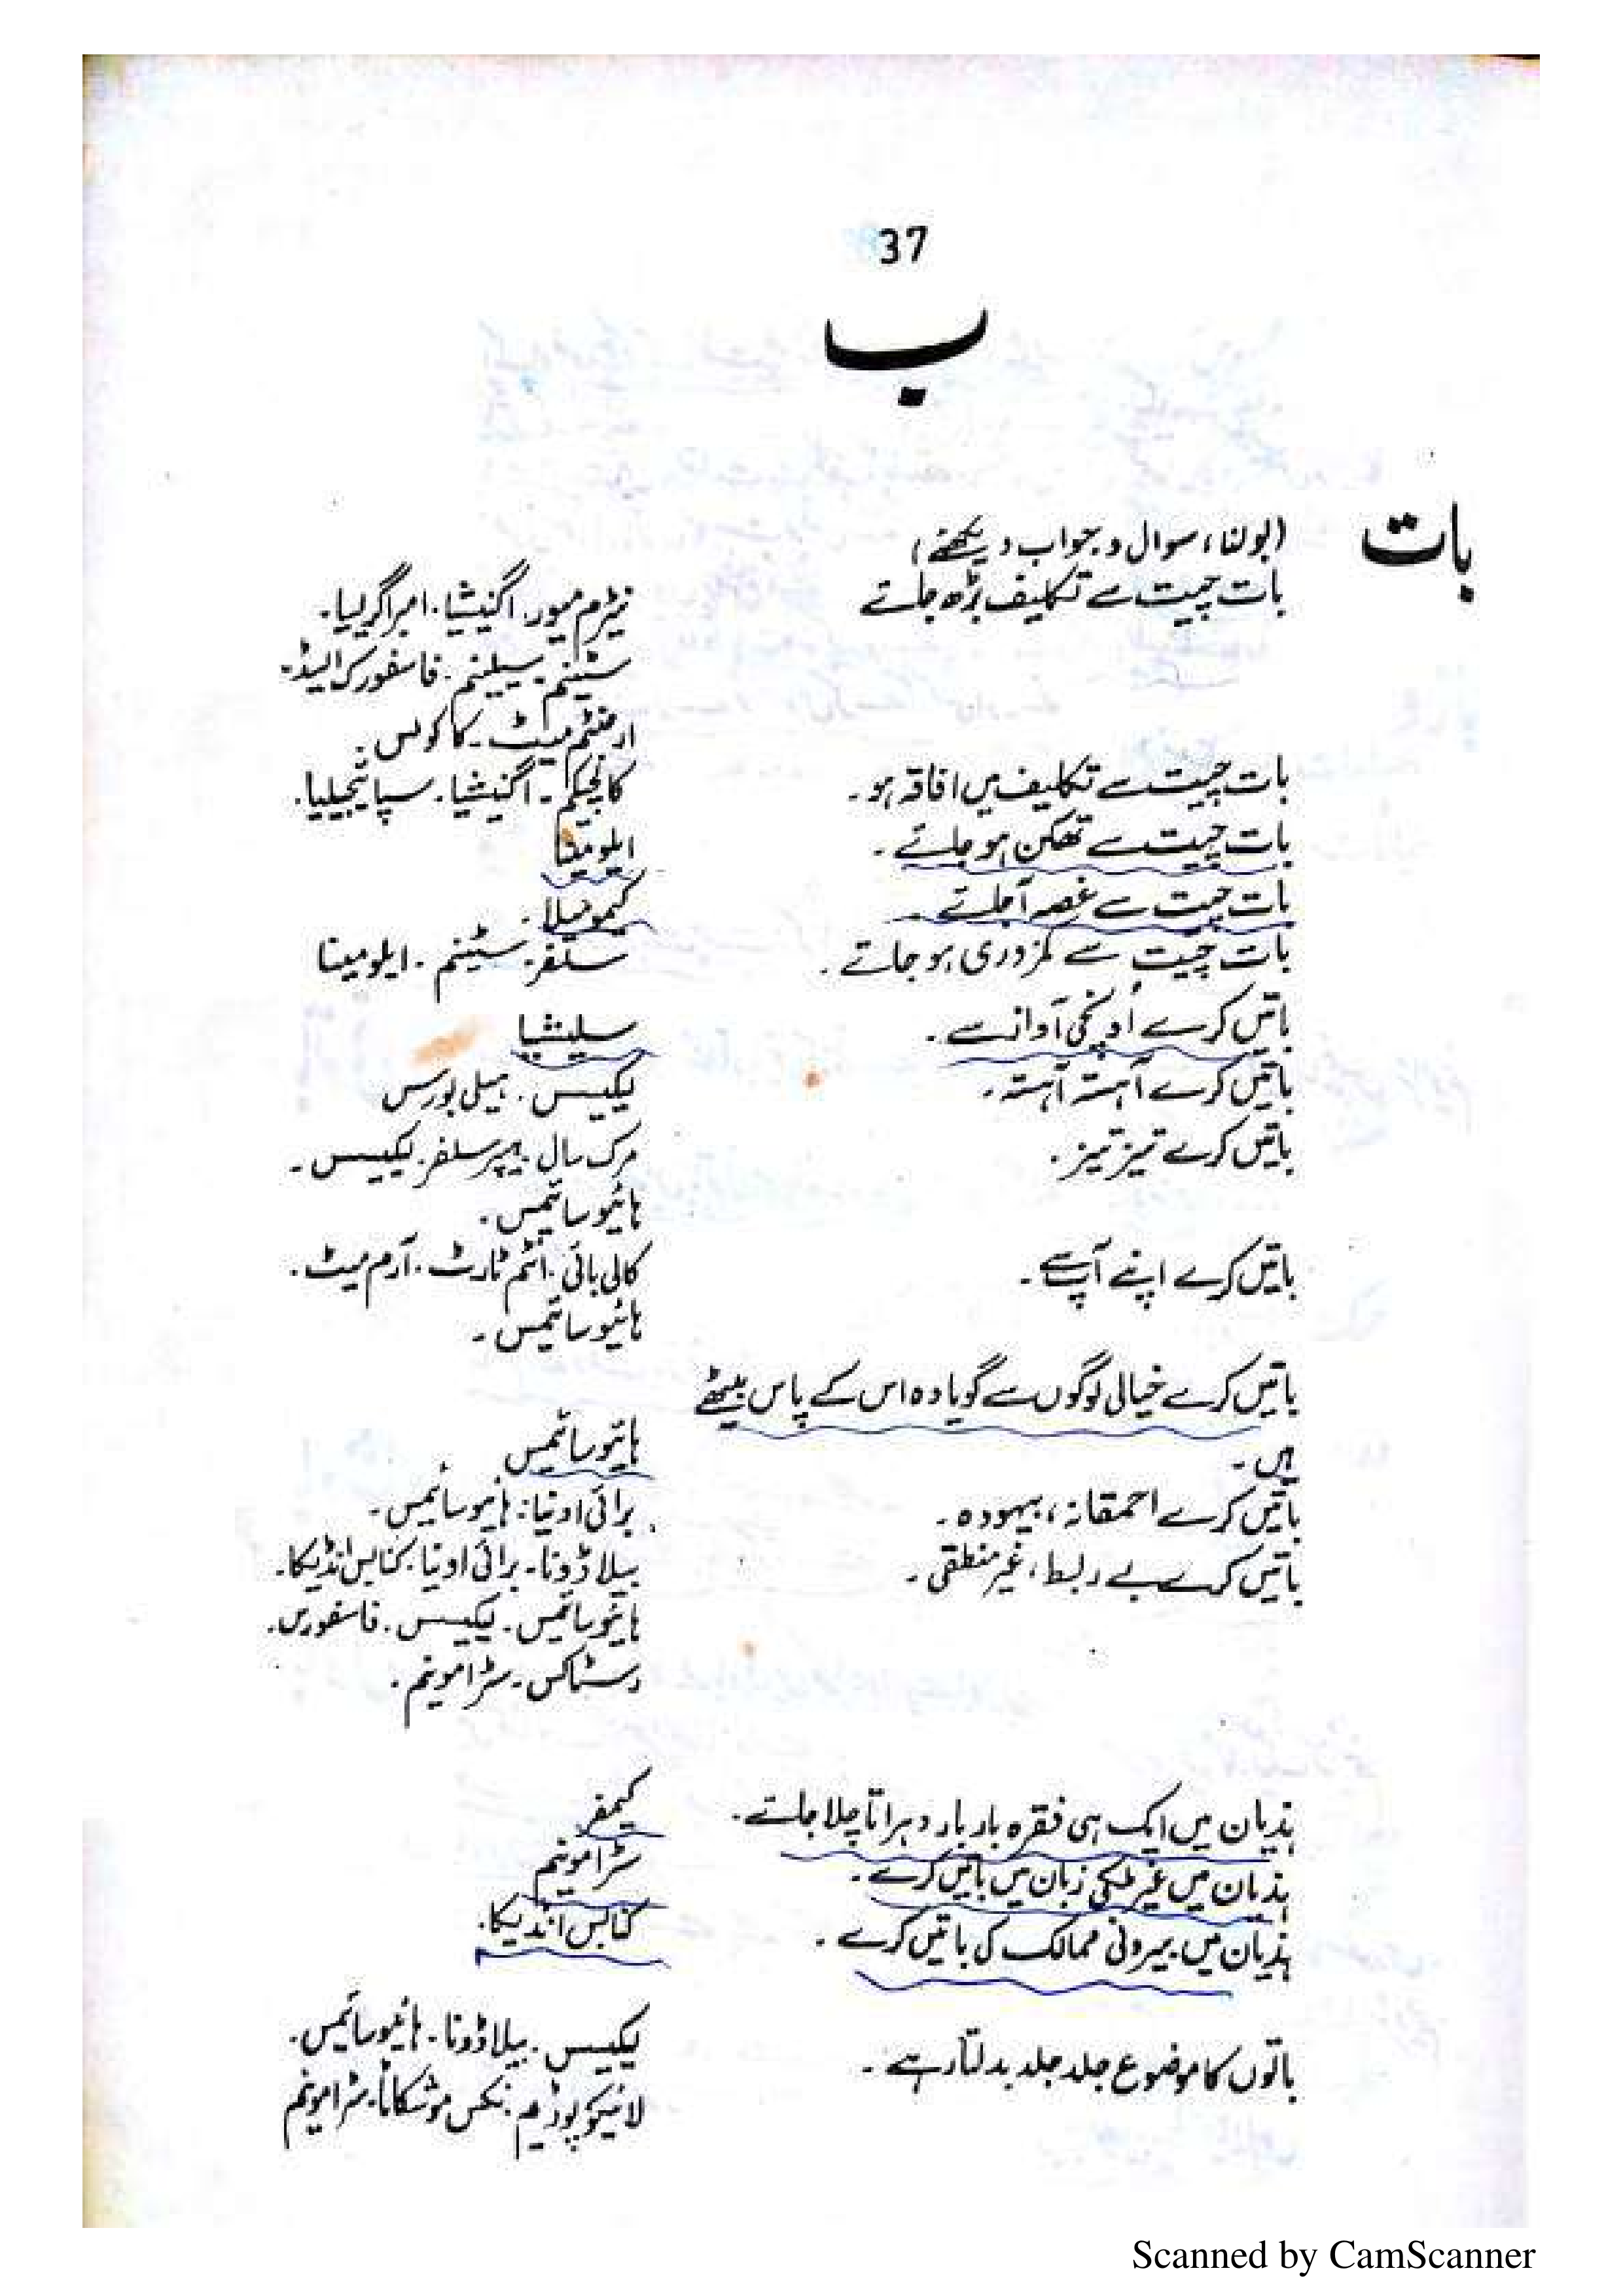 37
ب
بات
(بولنا، سوال و جواب دیکھئے)
بات چیت سے تکلیف بڑھ جائے
نیٹرم میور۔ اگنیشیا۔ امبراگریسیا۔
سٹینم۔ سیلینم۔ فاسفورک ایسڈ۔
ارجنٹم میٹ۔ کاکولس۔
بات چیت سے تکلیف میں افاقہ ہو۔
کالچیکم۔ اگنیشیا۔ سپائیجیلیا۔
بات چیت سے تھکن ہو جائے۔
ایلومینا
بات چیت سے غصہ آ جائے۔
کیمومیلا۔
بات چیت سے کمزوری ہو جائے۔
سلفر۔ سٹینم۔ ایلومینا
باتیں کرے اونچی آواز سے۔
سلینشیا
باتیں کرے آہستہ آہستہ۔
لیکیسس۔ ہیلی بورس
باتیں کرے تیز تیز۔
مرک سال۔ ہیپر سلفر۔ لیکیسس۔
ہائیوسائمس۔
باتیں کرے اپنے آپ سے۔
کالی بائی۔ انٹم ٹارٹ۔ آرم میٹ۔
ہائیوسائمس۔
باتیں کرے خیالی لوگوں سے گویا وہ اس کے پاس بیٹھے
ہیں۔
ہائیوسائمس
باتیں کرے احمقانہ، بیہودہ۔
برائی اونیا۔ ہائیوسائمس۔
باتیں کرے بے ربط، غیر منطقی۔
بیلاڈونا۔ برائی اونیا۔ کنابس انڈیکا۔
ہائیوسائمس۔ لیکیسس۔ فاسفورس۔
رسٹاکس۔ سٹرامونیم۔
ہذیان میں ایک ہی فقرہ بار بار دہراتا چلا جائے۔
کیمفر
ہذیان میں غیر ملکی زبان میں باتیں کرے۔
سٹرامونیم
ہذیان میں بیرونی ممالک کی باتیں کرے۔
کنابس انڈیکا۔
باتوں کا موضوع جلد جلد بدلتا رہے۔
لیکیسس۔ بیلاڈونا۔ ہائیوسائمس۔
لائیکوپوڈیم۔ نکس موشکاٹا۔ سٹرامونیم
Scanned by CamScanner